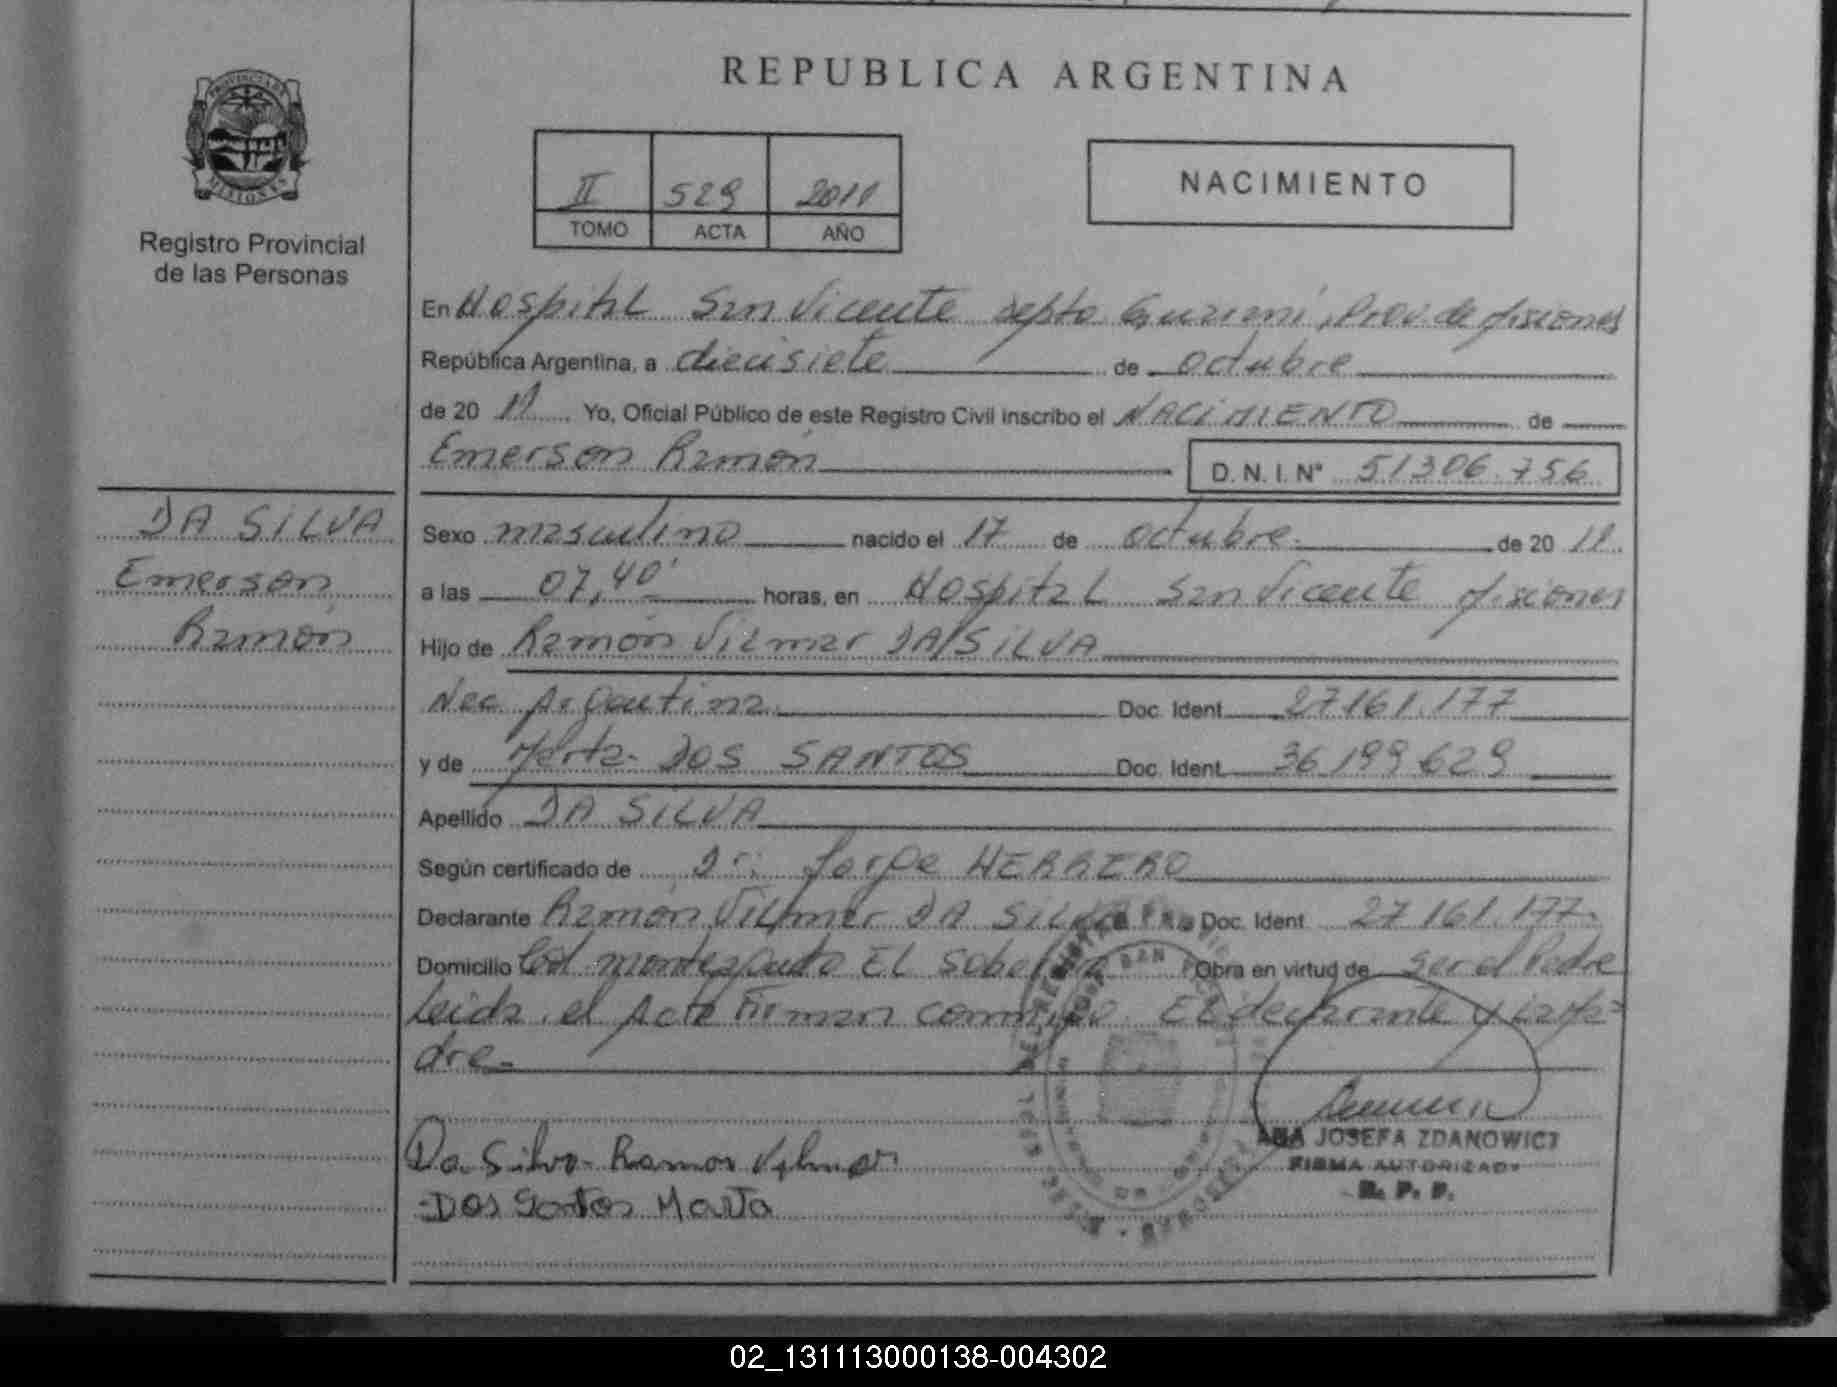 REPUBLICA ARGENTINA
PROVINCIA DE
MISIONES
Registro Provincial
de las Personas
II 529 2011
TOMO ACTA AÑO
NACIMIENTO
En Hospital San Vicente depto Guaraní, Prov. de Misiones
República Argentina, a diecisiete de octubre
de 20 11 Yo, Oficial Público de este Registro Civil inscribo el NACIMIENTO de
Emerson Ramón D. N. I. Nº 51306.756
DA SILVA
Emerson
Ramón
Sexo masculino nacido el 17 de octubre de 20 11
a las 07,40' horas, en Hospital San Vicente Misiones
Hijo de Ramón Vilmar DA SILVA
Nac Argentina Doc. Ident. 27161.177
y de Marta DOS SANTOS Doc. Ident. 36199629
Apellido DA SILVA
Según certificado de Dr: Jorge HERRERO
Declarante Ramón Vilmar DA SILVA Doc. Ident. 27161.177
Domicilio Col. EL Obra en virtud de ser el Padre
Leida el Acta Firman conmigo EL declarante y La Ma=
dre
Da Silva Ramon Vilmar
Dos Santos Marta
ANA JOSEFA ZDANOWICZ
FIRMA AUTORIZADA
R. P. P.
02_131113000138-004302